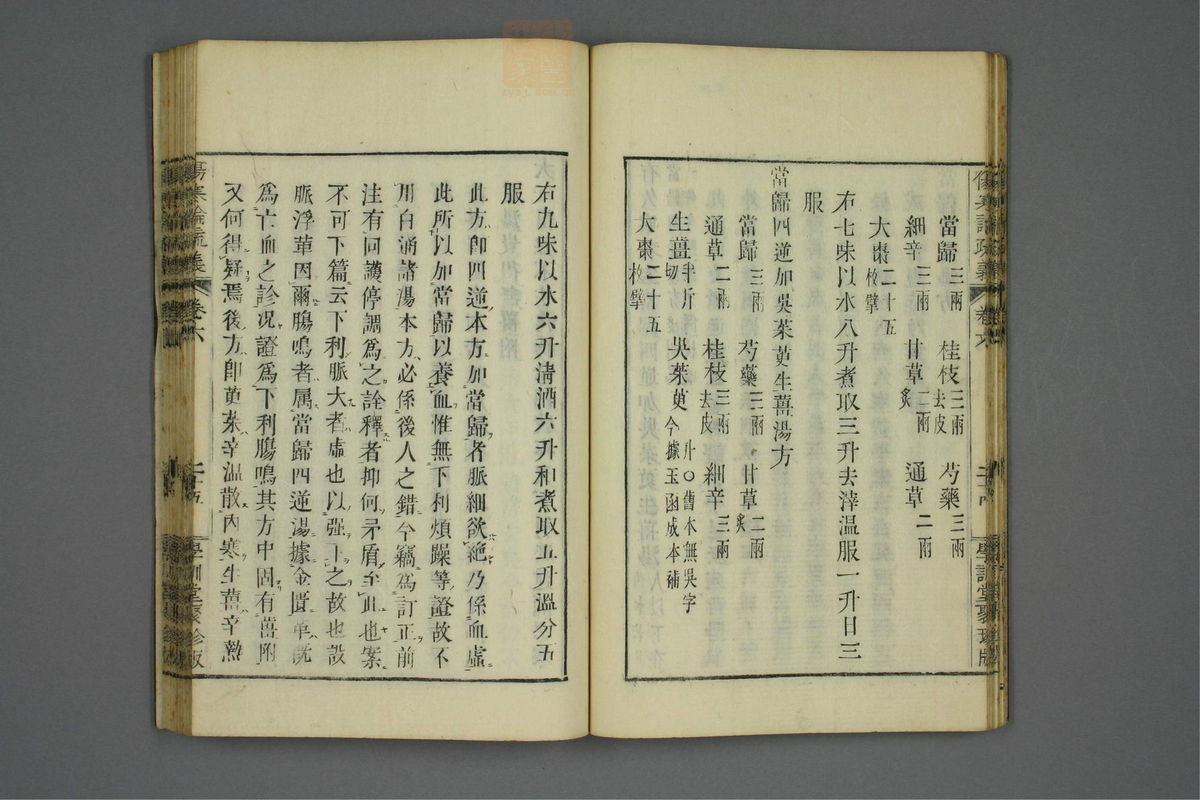 傷寒論疏義 卷六 二十四 學訓堂聚珍版
當歸三兩 桂枝三兩去皮 芍藥三兩
細辛三兩 甘草二兩炙 通草二兩
大棗二十五枚擘
右七味以水八升煮取三升去滓溫服一升日三
服
當歸四逆加吳茱萸生薑湯方
當歸三兩 芍藥三兩 甘草二兩炙
通草二兩 桂枝三兩去皮 細辛三兩
生薑半斤切 吳茱萸升○舊本無吳字今據玉函成本補
大棗二十五枚擘
右九味以水六升清酒六升和煮取五升溫分五
服
此方卽四逆本方加當歸者脈細欲絕乃係血虛
此所以加當歸以養血惟無下利煩躁等證故不
用白通諸湯本方必係後人之錯今竊爲訂正前
注有回護停調爲之詮釋者抑何矛盾至此也案
不可下篇云下利脈大者虛也以强下之故也設
脈浮革因爾腸鳴者属當歸四逆湯據金匱革旣
爲亡血之診況證爲下利腸鳴其方中固有薑附
又何得疑焉後方卽萸茱辛溫散內寒生薑辛熱
傷寒論疏義 卷六 二十五 學訓堂聚珍版